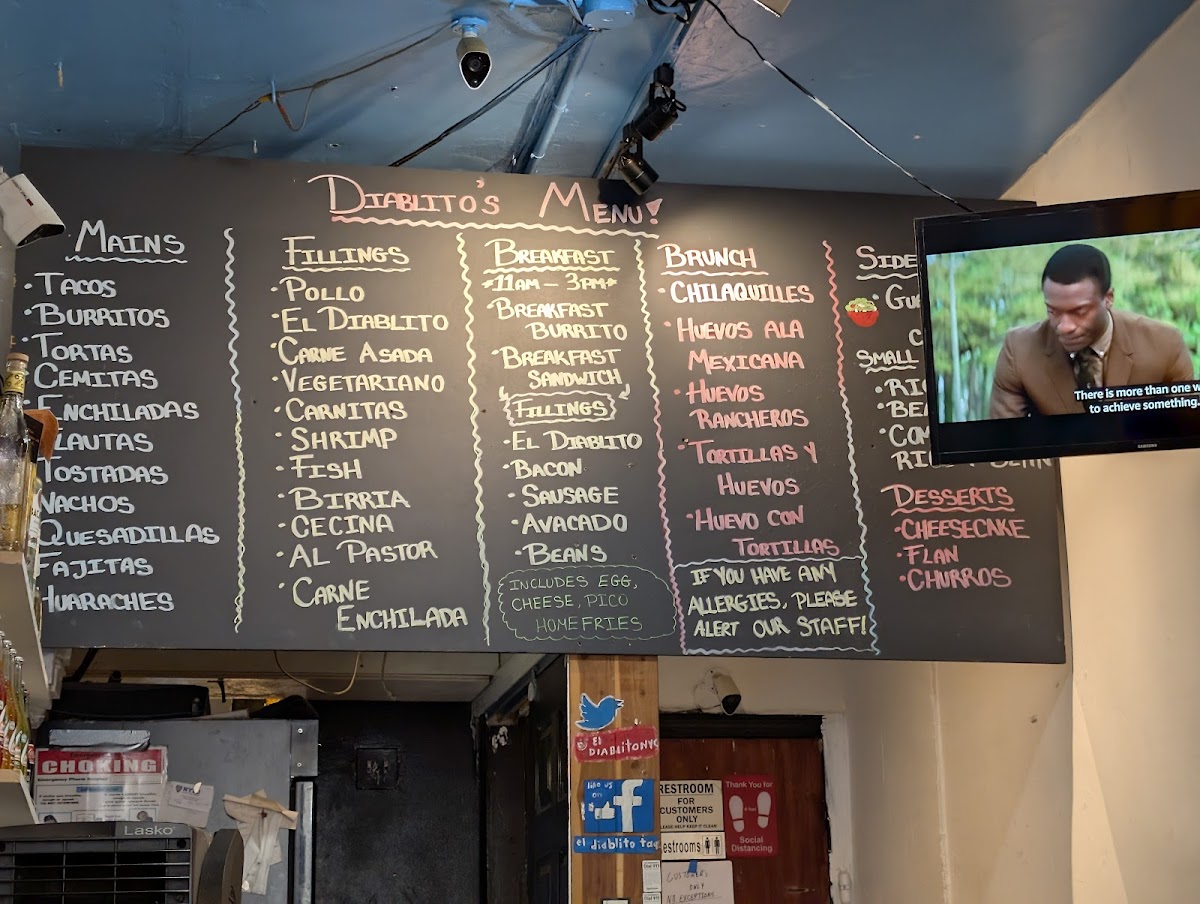 DIABLITO'S MENU!
MAINS
·TACOS
·BURRITOS
·TORTAS
CEMITAS
ENCHILADAS
FLAUTAS
TOSTADAS
NACHOS
QUESADILLAS
FAJITAS
HUARACHES
FILLINGS
·POLLO
·EL DIABLITO
·CARNE ASADA
·VEGETARIANO
·CARNITAS
·SHRIMP
·FISH
·BIRRIA
·CECINA
·AL PASTOR
·CARNE
ENCHILADA
BREAKFAST
*11AM - 3PM*
·BREAKFAST
BURRITO
·BREAKFAST
SANDWICH
FILLINGS
·EL DIABLITO
·BACON
·SAUSAGE
·AVACADO
·BEANS
INCLUDES EGG,
CHEESE, PICO
HOMEFRIES
BRUNCH
·CHILAQUILLES
·HUEVOS ALA
MEXICANA
·HUEVOS
RANCHEROS
·TORTILLAS Y
HUEVOS
·HUEVO CON
TORTILLAS
IF YOU HAVE ANY
ALLERGIES, PLEASE
ALERT OUR STAFF!
SMALL
DESSERTS
·CHEESECAKE
·FLAN
·CHURROS
There is more than one w
to achieve something.
SAMSUNG
CHOKING
Lasko
EL
DIABLITONYC
like us
on
f
el diablito taq
RESTROOM
FOR
CUSTOMERS
ONLY
PLEASE HELP KEEP IT CLEAN
estrooms
Thank You for
Social
Distancing
CUSTOMERS
ONLY
NO EXCEPTIONS